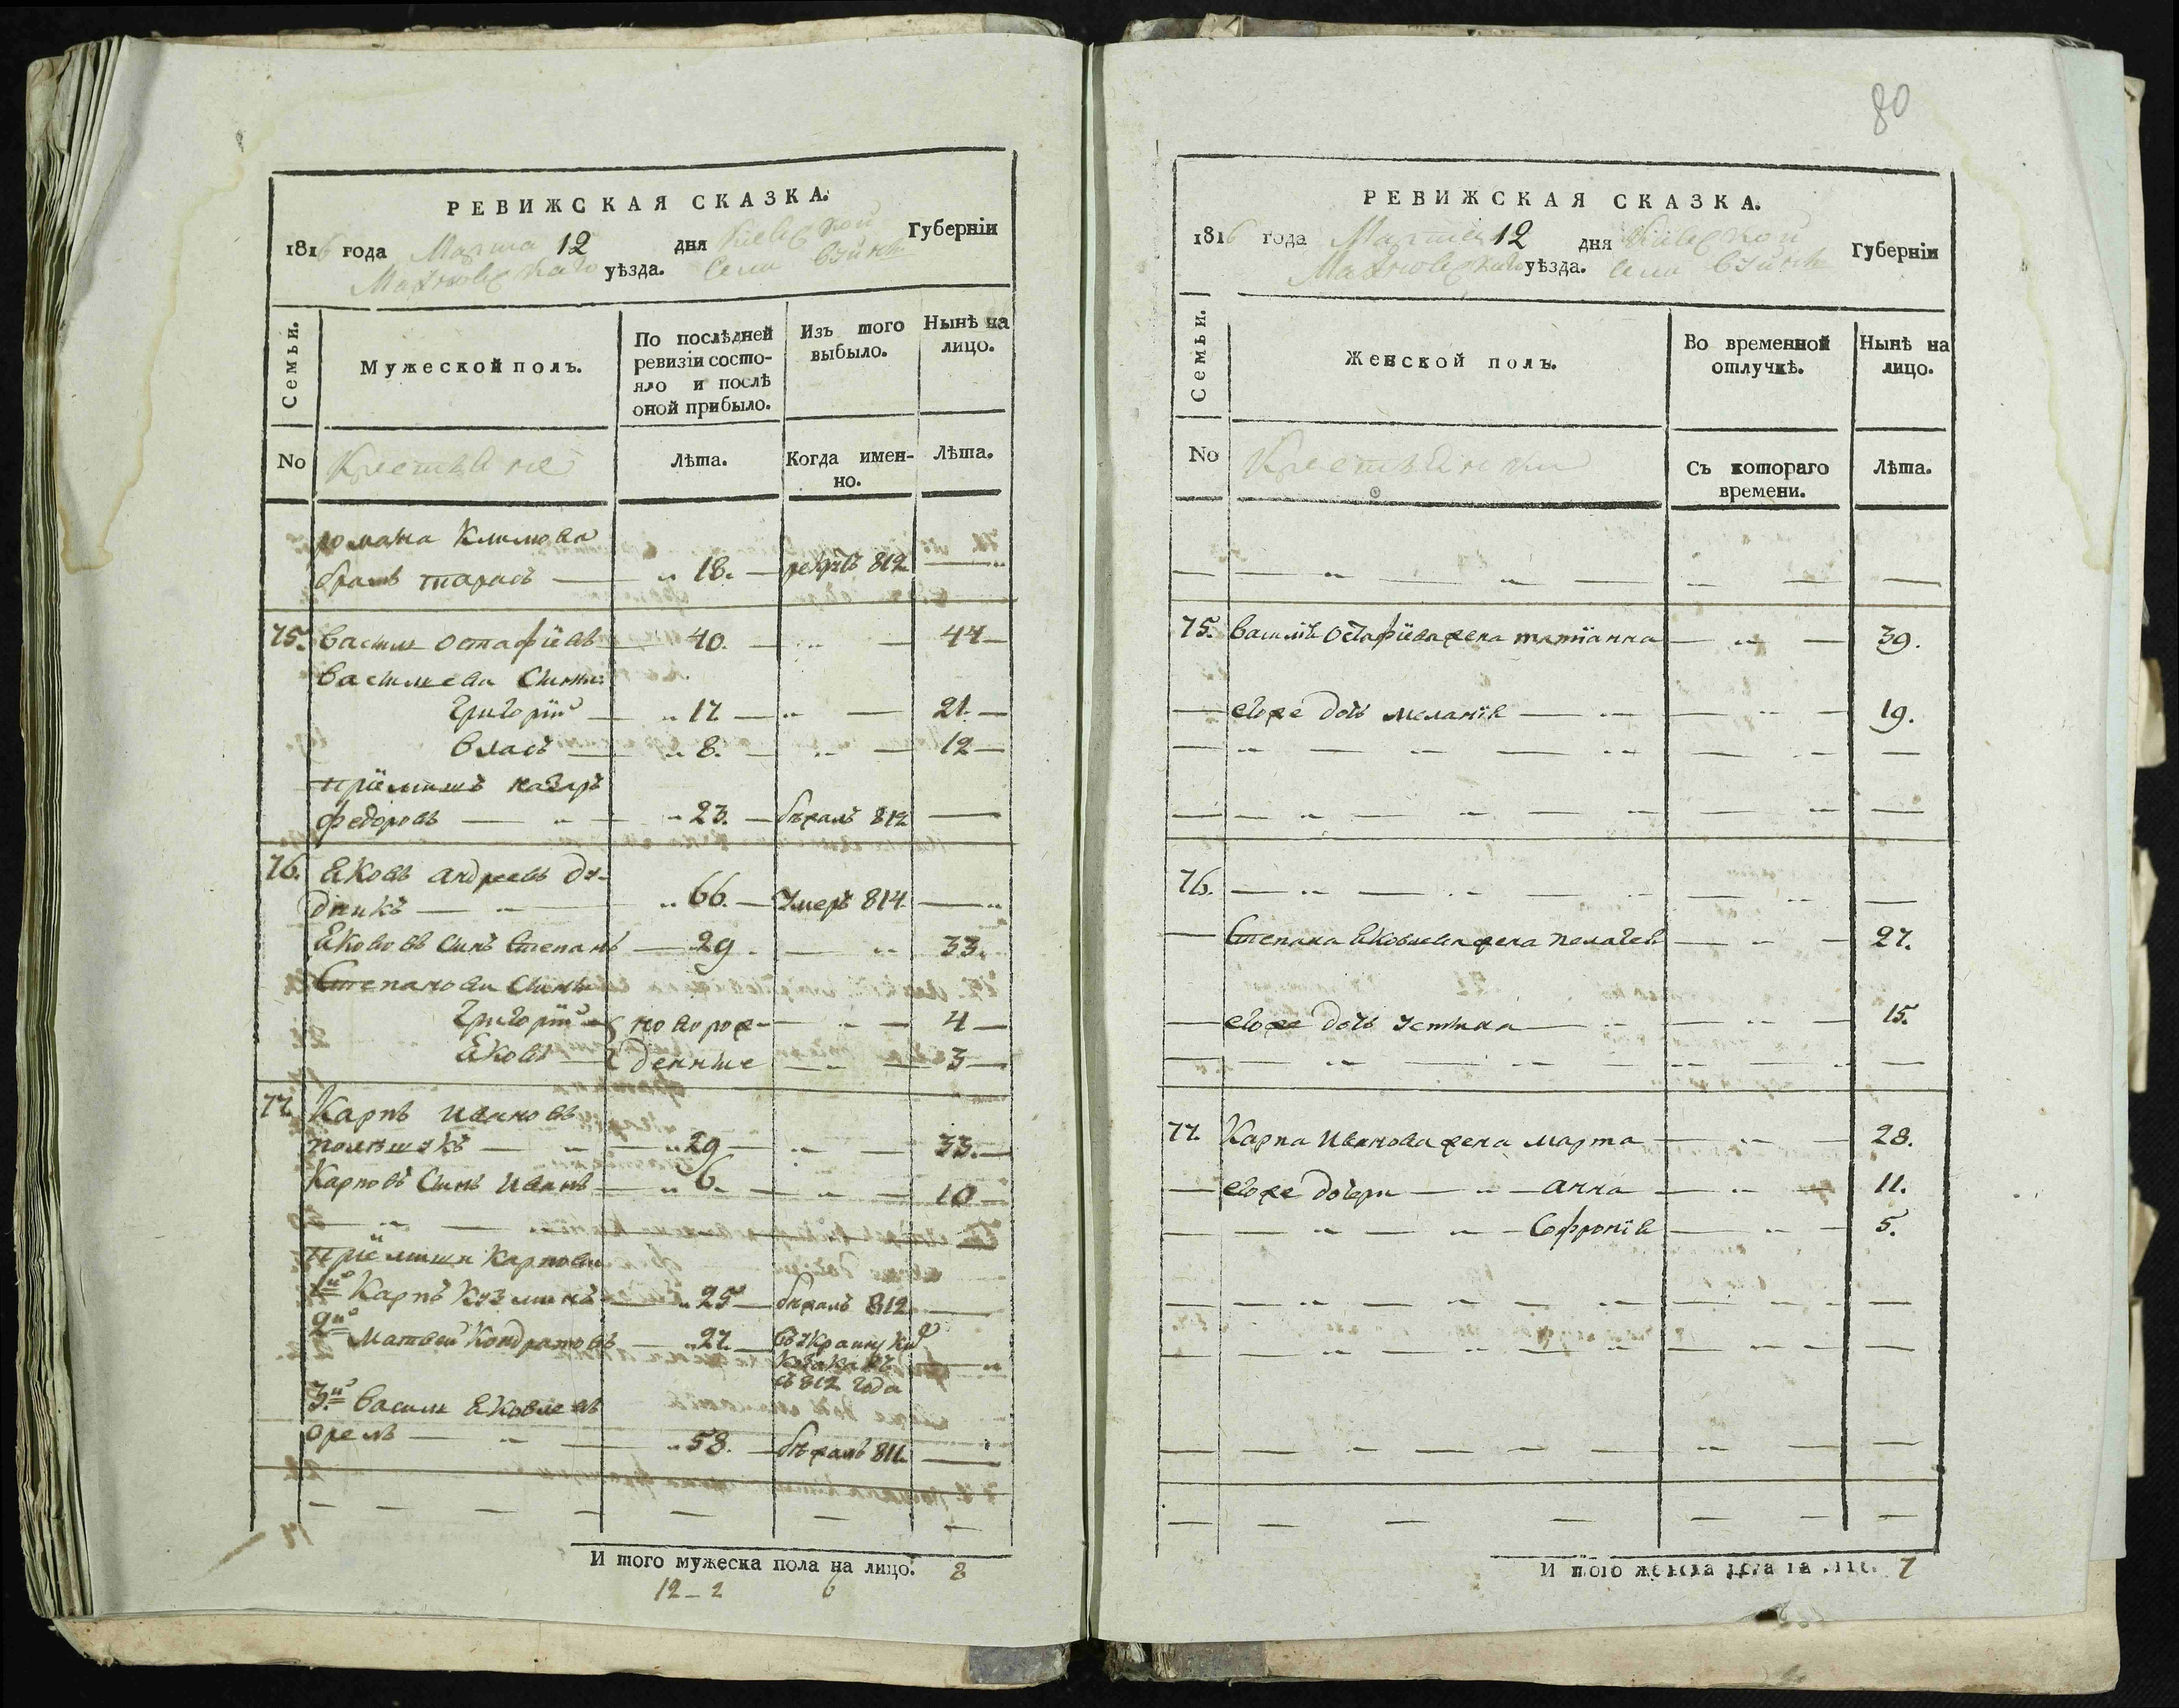 РЕВИЖСКАЯ СКАЗКА.
1816 года Марта 12 дня Киевской Губерніи
Махновскаго уѣзда. Села
Семьи.
Мужеской полъ.
По послѣдней ревизіи состо-
яло и послѣ оной прибыло.
Изъ того выбыло.
Нынѣ на лицо.
No Крестьяне Лѣта. Когда имен-но. Лѣта.
романа Климова
братъ тарасъ — 18. — рекрутъ 812 —
75. василь Остафіевъ — 40. — 44 —
василевы Сыны:
григорій — 17 — 21. —
власъ — 8. — 12 —
пріемышъ назаръ
федоровъ — 23. — бѣжалъ 812 —
76. Яковъ андреевъ
66. — умеръ 814. —
Якововъ сынъ Степанъ — 29. — 33.
Степановы Сыны
григорій — новорож- — 4 —
Яковъ — денные — 3 —
77. Карпъ Ивановъ
— 29 — 33. —
Карповъ Сынъ Иванъ — 6. — 10 —
пріемыши Карповы
1й Карпъ Кузминъ — 25 — бѣжалъ 812 —
2й Матвей Кондратовъ — 27. —
съ 812 года
3й василь Яковлевъ
орелъ — 58. — бѣжалъ 811. —
И того мужеска пола на лицо. 8
12 – 2 6
80
РЕВИЖСКАЯ СКАЗКА.
1816 года Марта 12 дня Киевской Губерніи
Махновскаго уѣзда. Села
Семьи.
Женской полъ.
Во временной отлучкѣ.
Нынѣ на лицо.
No Крестьянки Съ котораго времени. Лѣта.
75. василя Остафіева жена татіанна — 39.
егоже дочь меланія — 19.
76.
Степана Яковлева жена пелагея — 27.
егоже дочь устина — 15.
77. Карпа Иванова жена марта — 28.
егоже дочери — анна — 11.
Софронія — 5.
И того женска пола на лиц. 7